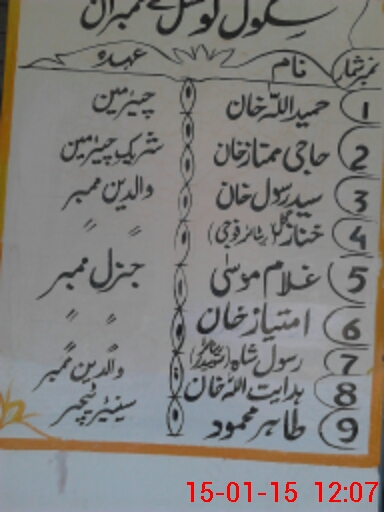 سکول کونسل کے ممبران
نمبر شمار نام عہدہ
1 حمید اللہ خان چیئرمین
2 حاجی ممتاز خان شریک چیئرمین
3 سید رسول خان والدین ممبر
4 خناز گل (ریٹائر فوجی) 〃 〃
5 غلام موسیٰ جنرل ممبر
6 امتیاز خان 〃 〃
7 رسول شاہ والدین ممبر
8 ہدایت اللہ خان 〃 〃
9 طاہر محمود سینیئر ٹیچر
15-01-15 12:07